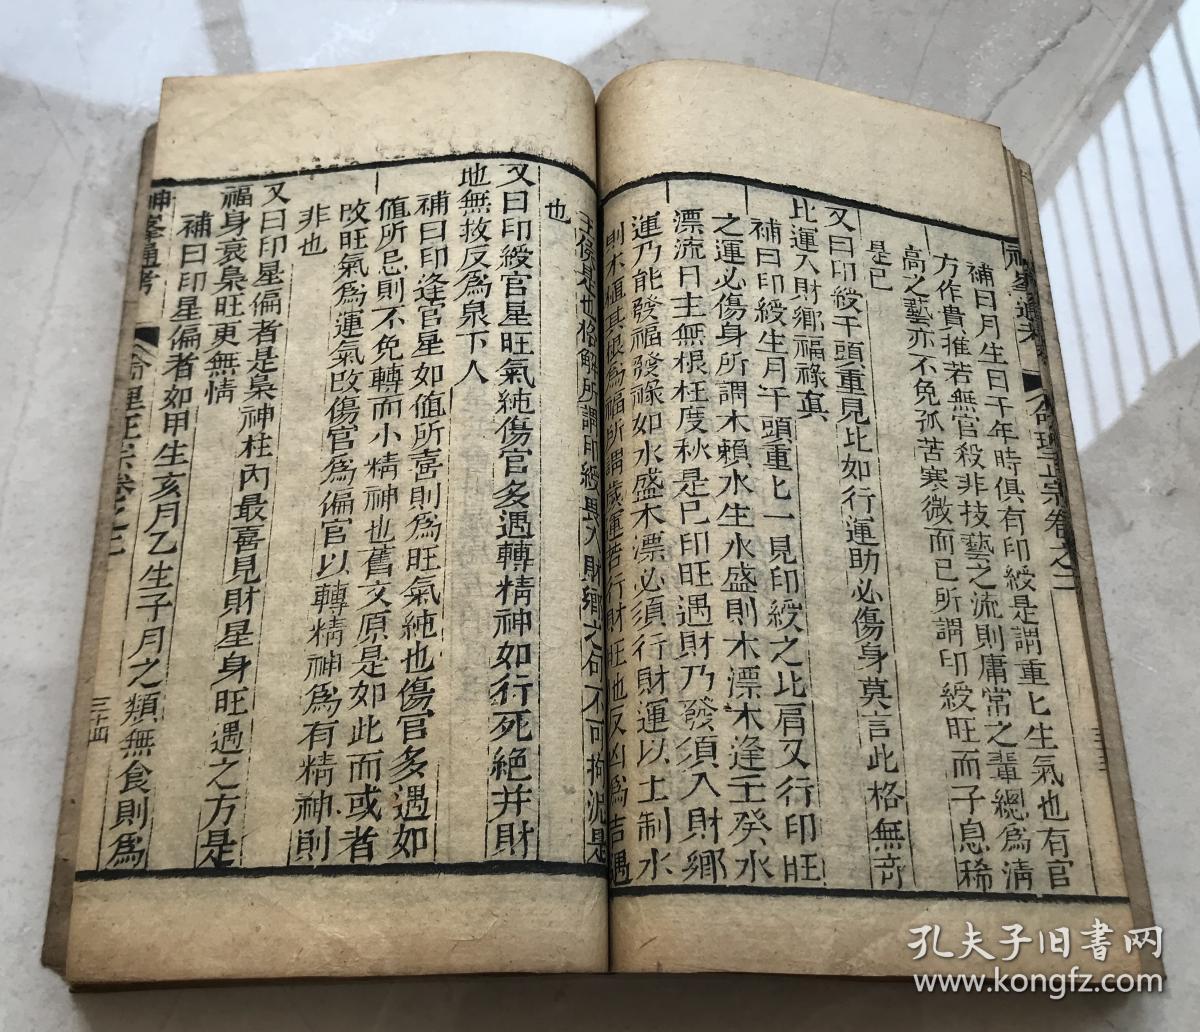 神峯通考 命理正宗卷之二 三十三
補曰月生日干年時俱有印綬是謂重匕生氣也有官
方作貴推若無官殺非技藝之流則庸常之輩總為清
高之藝亦不免孤苦寒微而已所謂印綬旺而子息稀
是已
又曰印綬干頭重見比如行運助必傷身莫言此格無奇
比運入財鄉福祿真
補曰印綬生月干頭重匕一見印綬之比肩又行印旺
之運必傷身所謂木賴水生水盛則木漂木逢壬癸水
漂流日主無根枉度秋是已印旺遇財乃發須入財鄉
運乃能發福發祿如水盛木漂必須行財運以土制水
則木植其根為福所謂歲運若行財旺也反凶為吉遇
也格解所謂印綬畏入財鄉之句不可拘泥是
也
又曰印綬官星旺氣純傷官多遇轉精神如行死絕并財
地無救反為泉下人
補曰印逢官星如值所喜則為旺氣純也傷官多遇如
值所忌則不免轉而小精神也舊文原是如此而或者
改旺氣為運氣改傷官為偏官以轉精神為有精神則
非也
又曰印星偏者是梟神柱內最喜見財星身旺遇之方是
福身衰梟旺更無情
補曰印星偏者如甲生亥月乙生子月之類無食則為
神峯通考 命理正宗卷之二 三十四
孔夫子旧書网
www.kongfz.com